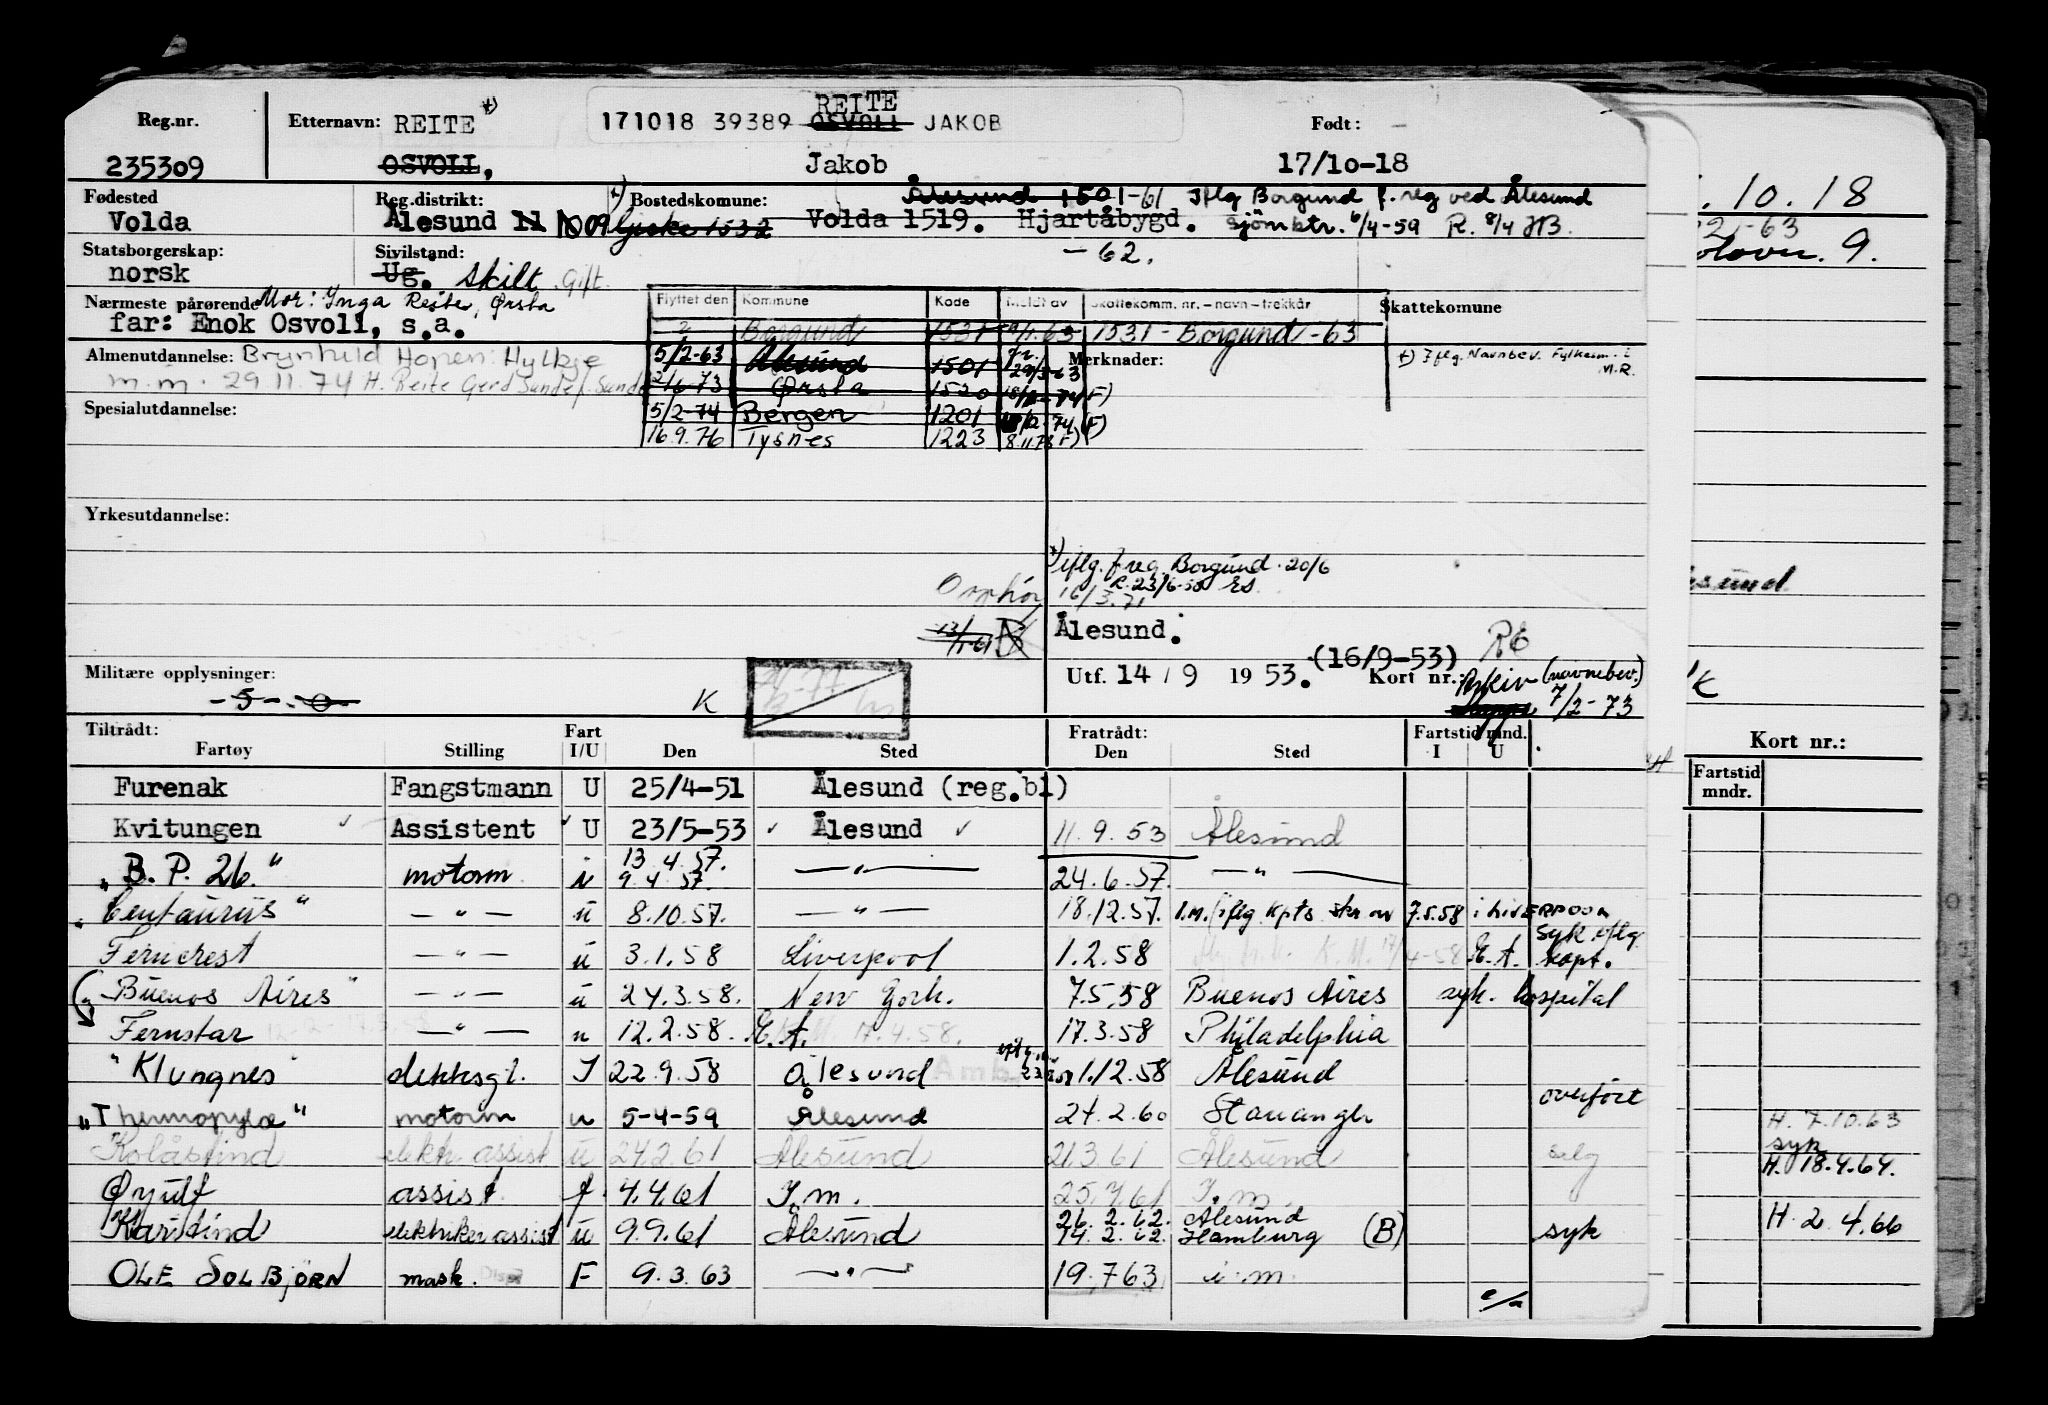 Reg.nr. Etternavn: REITE *) 171018 39389 REITE OSVOLL JAKOB Født:
235309 OSVOLL, Jakob 17/10-18
Fødested Reg.distrikt: *) Bostedskomune: Ålesund 1501-61 Iflg Borgund f.reg ved Ålesund
Volda Ålesund 11 N09 Giske 1532 Volda 1519. Hjartåbygd. sjömktr. 6/4-59 R. 8/4 HB.
Statsborgerskap: Sivilstand: -62.
norsk Ug. Skilt Gift.
Nærmeste pårørende Mor: Inga Reite, Ørsta
far: Enok Osvoll, s.a.
Flyttet den Kommune Kode Meldt av Skattekomm. nr. – navn – trekkår Skattekommune
Borgund 1531 1531 - Borgund - 63
Almenutdannelse: Brynhild Hopen: Hylkje
5/2-63 Ålesund 1501 29/3-63 Merknader: *) Iflg. Navnbev. Fylkesm. i M.R.
m.m. 29.11.74 H. Reite Gerd Sunde, Sunde
2/6-73 Ørsta 1520
Spesialutdannelse: 5/2-74 Bergen 1201 (F)
16.9.76 Tysnes 1223 8.11.78 F)
Yrkesutdannelse:
*) iflg. f.reg. Borgund 20/6
R. 23/6-58 ES
16/3.71
Opphør
Ålesund.
(16/9-53) RE
Militære opplysninger: Utf. 14 / 9 1953. Kort nr.: Arkiv (navnebev.)
-5-.-0- K 7/2-73
Tiltrådt: Fart Fratrådt: Fartstid mnd.
Fartøy Stilling I/U Den Sted Den Sted I U
Furenak Fangstmann U 25/4-51 Ålesund (reg.bl)
Kvitungen Assistent U 23/5-53 Ålesund 11.9.53 Ålesund
"B.P. 26." motorm u 13.4.57. 9.4.57. —"— 24.6.57. —"—
"Centaurus" —"— u 8.10.57. —"— 18.12.57. I.m. (iflg. kpts skr av 7.5.58 i LIVERPOOL
Syk iflg
Ferncrest —"— u 3.1.58 Liverpool 1.2.58 E.A. kapt.
"Buenos Aires" —"— u 24.3.58. New York. 7.5.58 Buenos Aires syk. hospital
Fernstar —"— u 12.2.58. E.A. 17.3.58 Philadelphia
"Klungnes" dekksgt. I 22.9.58 Ålesund 1.12.58 Ålesund
"Thermopylæ" motorm u 5-4-59 Ålesund 24.2.60 Stavanger overført
Kolåstind elektr. assist u 24.2.61 Ålesund 21.3.61 Ålesund selg
Øyulf assist. f 4.4.61 I.m. 25.7.61 I.m.
Karistind elektriker assist u 9.9.61 Ålesund 26.2.62. Ålesund 14.2.62. Hamburg (B) syk
OLE SOLBJÖRN mask. Disp F 9.3.63 —"— 19.7.63 i.m.
e/a
.10.18
2-63
9.
K
Kort nr.:
Fartstid mndr.
H. 7.10.63
syk
H. 18.4.64.
H. 2.4.66